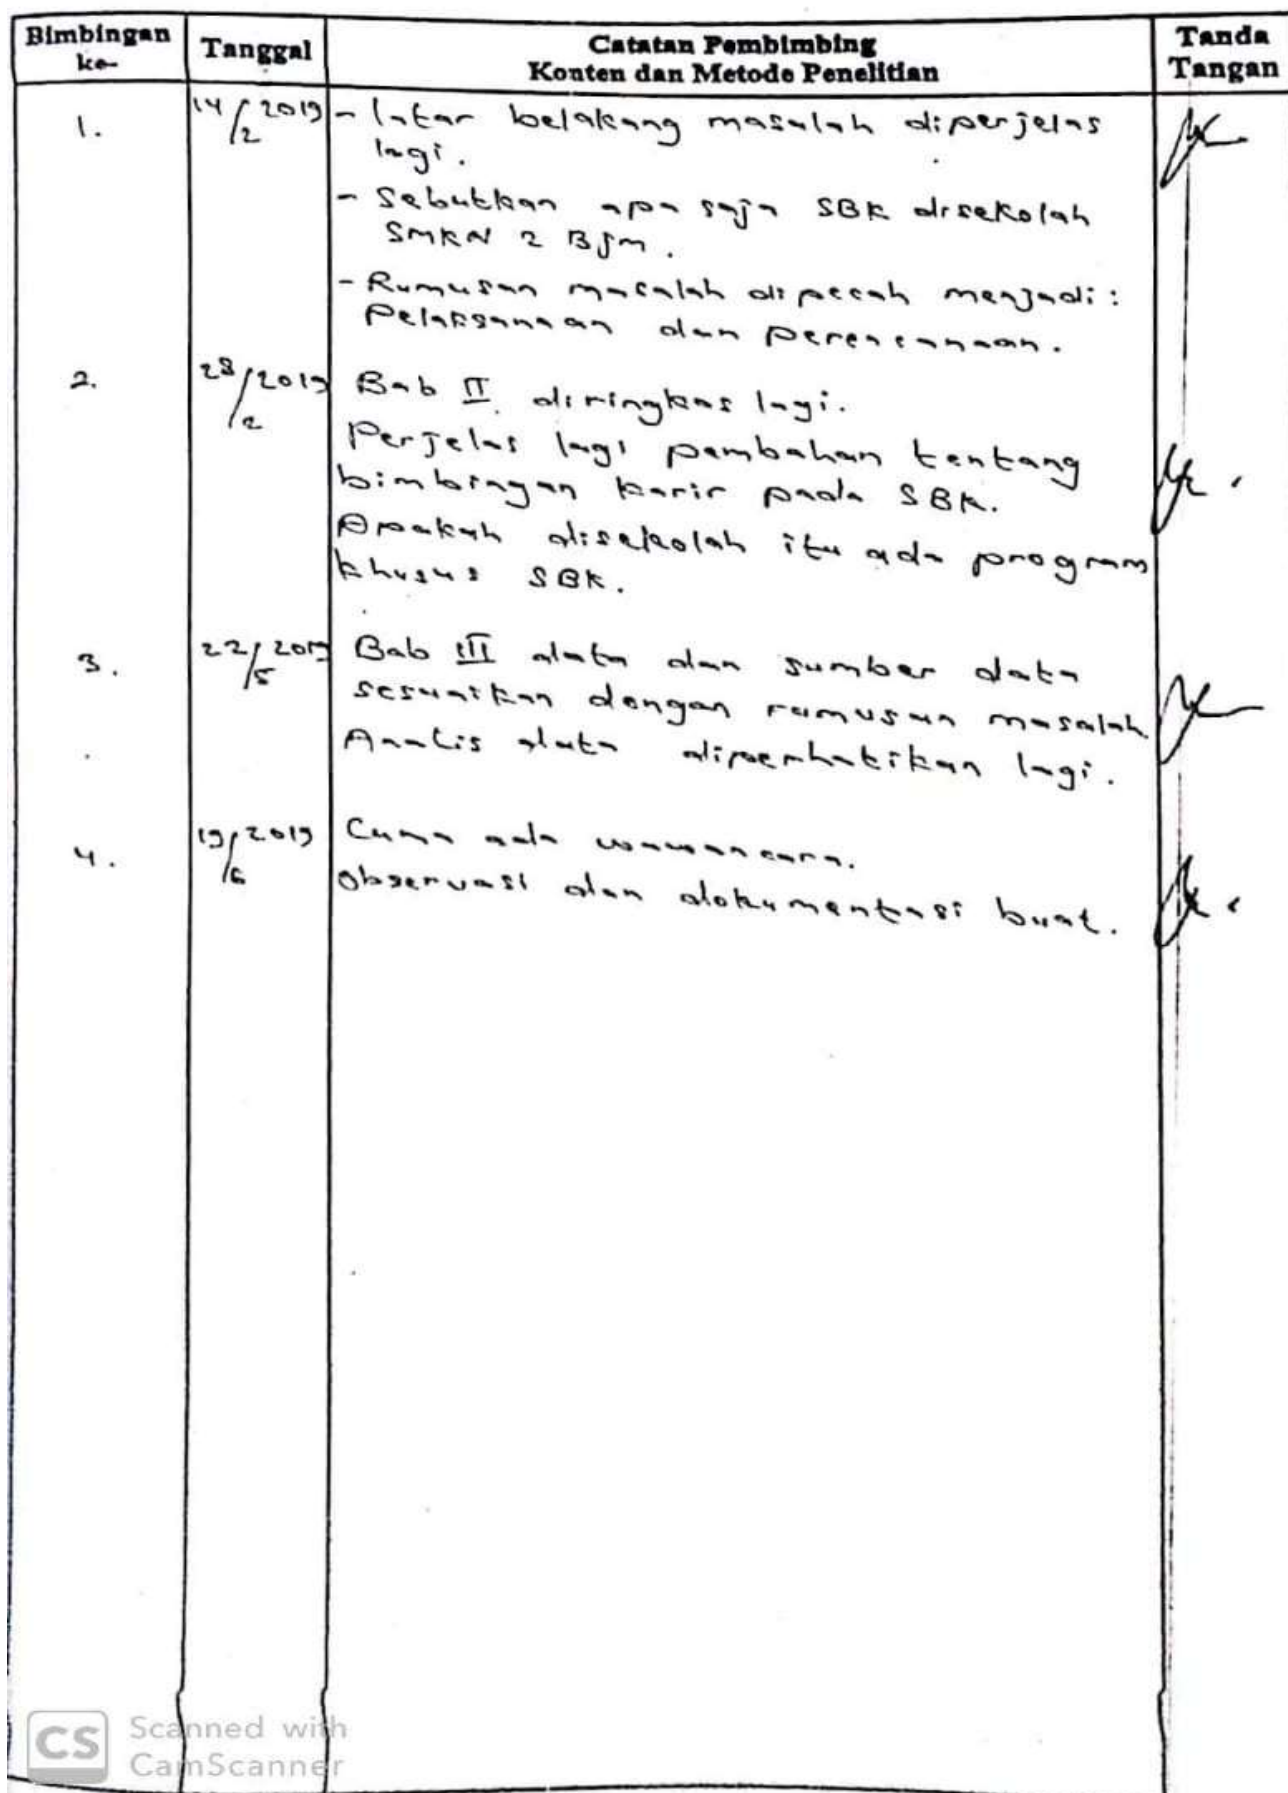 Bimbingan ke-
Tanggal
Catatan Pembimbing
Konten dan Metode Penelitian
Tanda Tangan
1.
14/2 2019
- latar belakang masalah diperjelas
lagi.
- Sebutkan apa saja SBK disekolah
SMKN 2 Bjm.
- Rumusan masalah dipecah menjadi:
Pelaksanaan dan perencanaan.
2.
28/2 2019
Bab II diringkas lagi.
Perjelas lagi pembahan tentang
bimbingan karir pada SBK.
Apakah disekolah itu ada program
khusus SBK.
3.
22/5 2019
Bab III data dan sumber data
sesuaikan dengan rumusan masalah.
Analis data diperhatikan lagi.
4.
19/6 2019
Cuma ada wawancara.
observasi dan dokumentasi buat.
CS
Scanned with
CamScanner